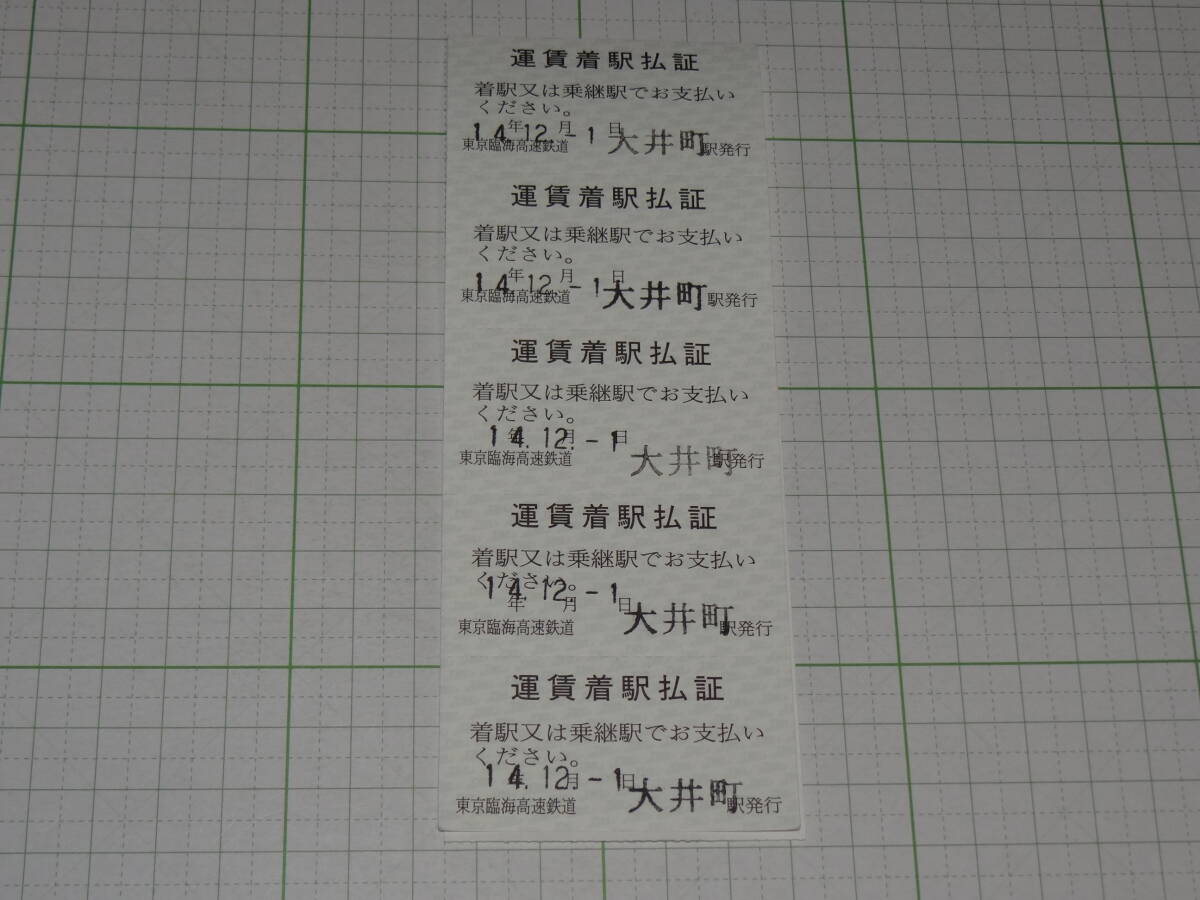 運賃着駅払証
着駅又は乗継駅でお支払い
ください。
14年12月-1日
東京臨海高速鉄道 大井町駅発行
運賃着駅払証
着駅又は乗継駅でお支払い
ください。
14年12月-1日
東京臨海高速鉄道 大井町駅発行
運賃着駅払証
着駅又は乗継駅でお支払い
ください。
14年12月-1日
東京臨海高速鉄道 大井町駅発行
運賃着駅払証
着駅又は乗継駅でお支払い
ください。
14年12月-1日
東京臨海高速鉄道 大井町駅発行
運賃着駅払証
着駅又は乗継駅でお支払い
ください。
14年12月-1日
東京臨海高速鉄道 大井町駅発行